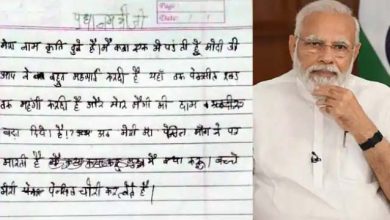 Page
Date
प्रधानमंत्री जी
मेरा नाम कृति दुबे है। मैं कक्षा एक में पढ़ती हूँ मोदी जी
आप ने बहुत महंगाई कर दी है यहाँ तक पेंसिल रबड़
तक महंगी कर दी है और मेरी मैगी की दाम भी
बढ़ा दिये है। अब मेरी माँ पेंसिल माँगने पर
मारती है मैं क्या करू। बच्चे
मेरी पेंसिल चोरी कर लेते है।